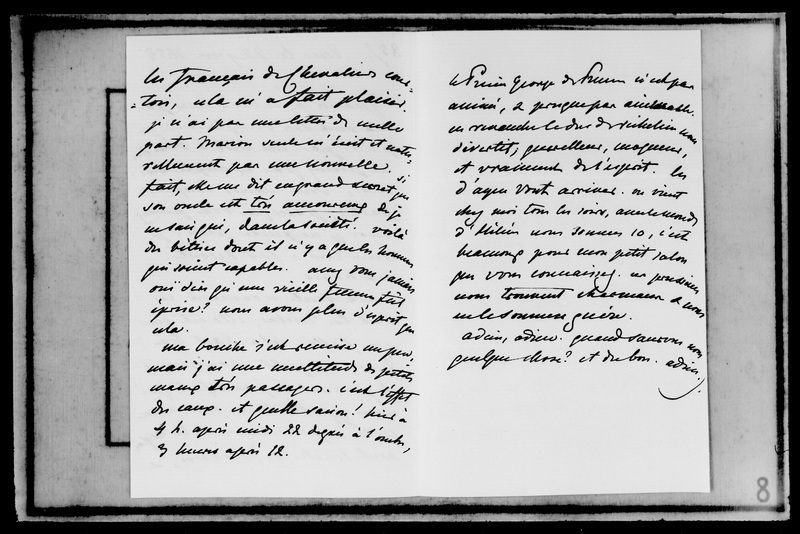 les français de Chevaliers cour-
-tois, cela m'a fait plaisir.
je n'ai pas une lettre de nulle
part. Marion seule m'écrit et natu-
rellement pas une nouvelle. Si
fait, elle me dit en grand secret que
son oncle est très amoureux de je
ne sais qui, dans la société. voilà
des bêtises dont il n'y a que les hommes
qui soient capables. avez vous jamais
oui dire qu'une vieille femme fût
éprise? nous avons plus d'esprit que
cela.
ma bouche s'est remise un peu,
mais j'ai une multitude de petits
maux très passagers. c'est l'effet
des eaux. et quelle saison! hier à
4 h. après midi 22 degrés à l'ombre,
3 heures après 12.
le Prince George de Prusse n'est pas
animé, et presque pas aimable.
en revanche le duc de Richelieu nous
divertit; querelleur, moqueur,
et vraiment de l'esprit. les
d'ayen vont arriver. on vient
chez moi tous les soirs, avec le monde
d'Hélène nous sommes 10, c'est
beaucoup pour mon petit salon
que vous connaissez. les prussiens
nous trouvent charmans et nous
ne le sommes guère.
adieu, adieu. quand saurons nous
quelque chose? et du bon. adieu.
8